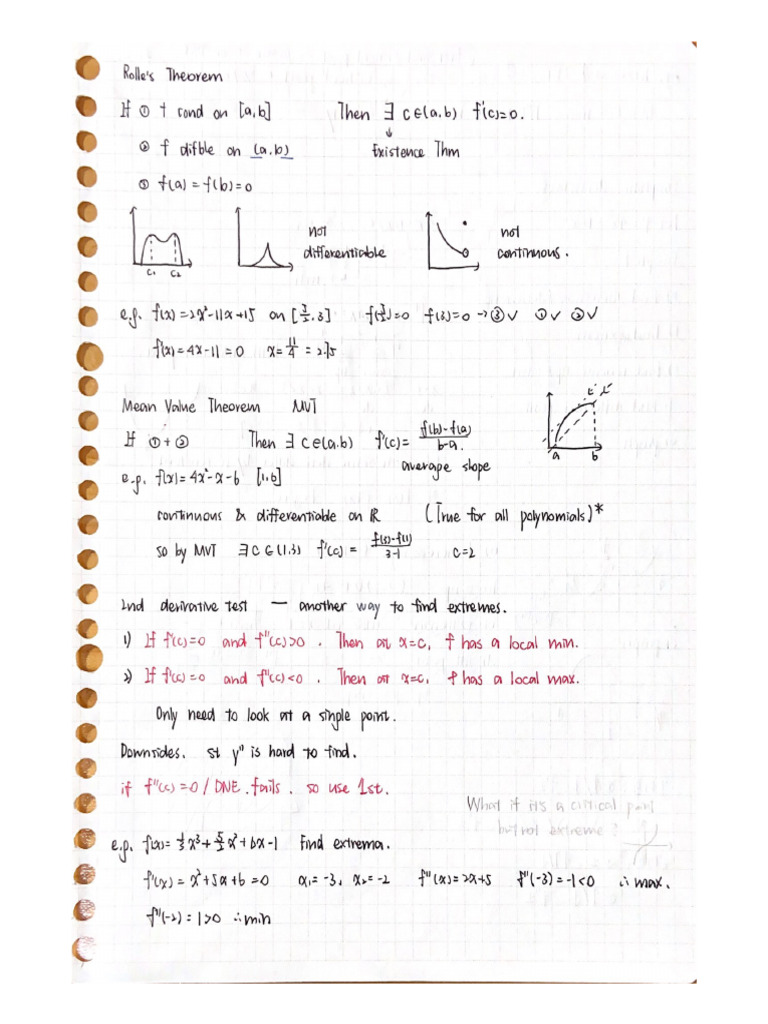 Rolle's Theorem
If ① f cond on [a,b] Then ∃ c∈(a,b) f'(c)=0.
② f difble on (a,b) ↓ Existence Thm
③ f(a) = f(b) = 0
c₁ c₂ not differentiable not continuous.
e.g. f(x) = 2x²-11x+15 on [5/2, 3] f(5/2)=0 f(3)=0 → ③✓ ①✓ ②✓
f'(x) = 4x-11 = 0 x = 11/4 = 2.75
Mean Value Theorem MVT
If ① + ② Then ∃ c∈(a,b) f'(c) = f(b)-f(a) / b-a. a b
average slope
e.g. f(x) = 4x²-x-6
continuous & differentiable on ℝ (True for all polynomials)*
so by MVT ∃ c ∈ (1,3) f'(c) = f(3)-f(1) / 3-1 c=2
2nd derivative test — another way to find extremes.
1) If f'(c)=0 and f''(c)>0. Then at x=c, f has a local min.
2) If f'(c)=0 and f''(c)<0. Then at x=c, f has a local max.
Only need to look at a single point.
Downsides. st y'' is hard to find.
if f''(c)=0 / DNE. fails. so use 1st.
What if it's a critical point
but not extreme?
e.g. f(x) = 1/3 x³ + 5/2 x² + 6x - 1 Find extrema.
f'(x) = x²+5x+6 = 0 x₁=-3, x₂=-2 f''(x)=2x+5 f''(-3)=-1<0 ∴ max.
f''(-2) = 1>0 ∴ min